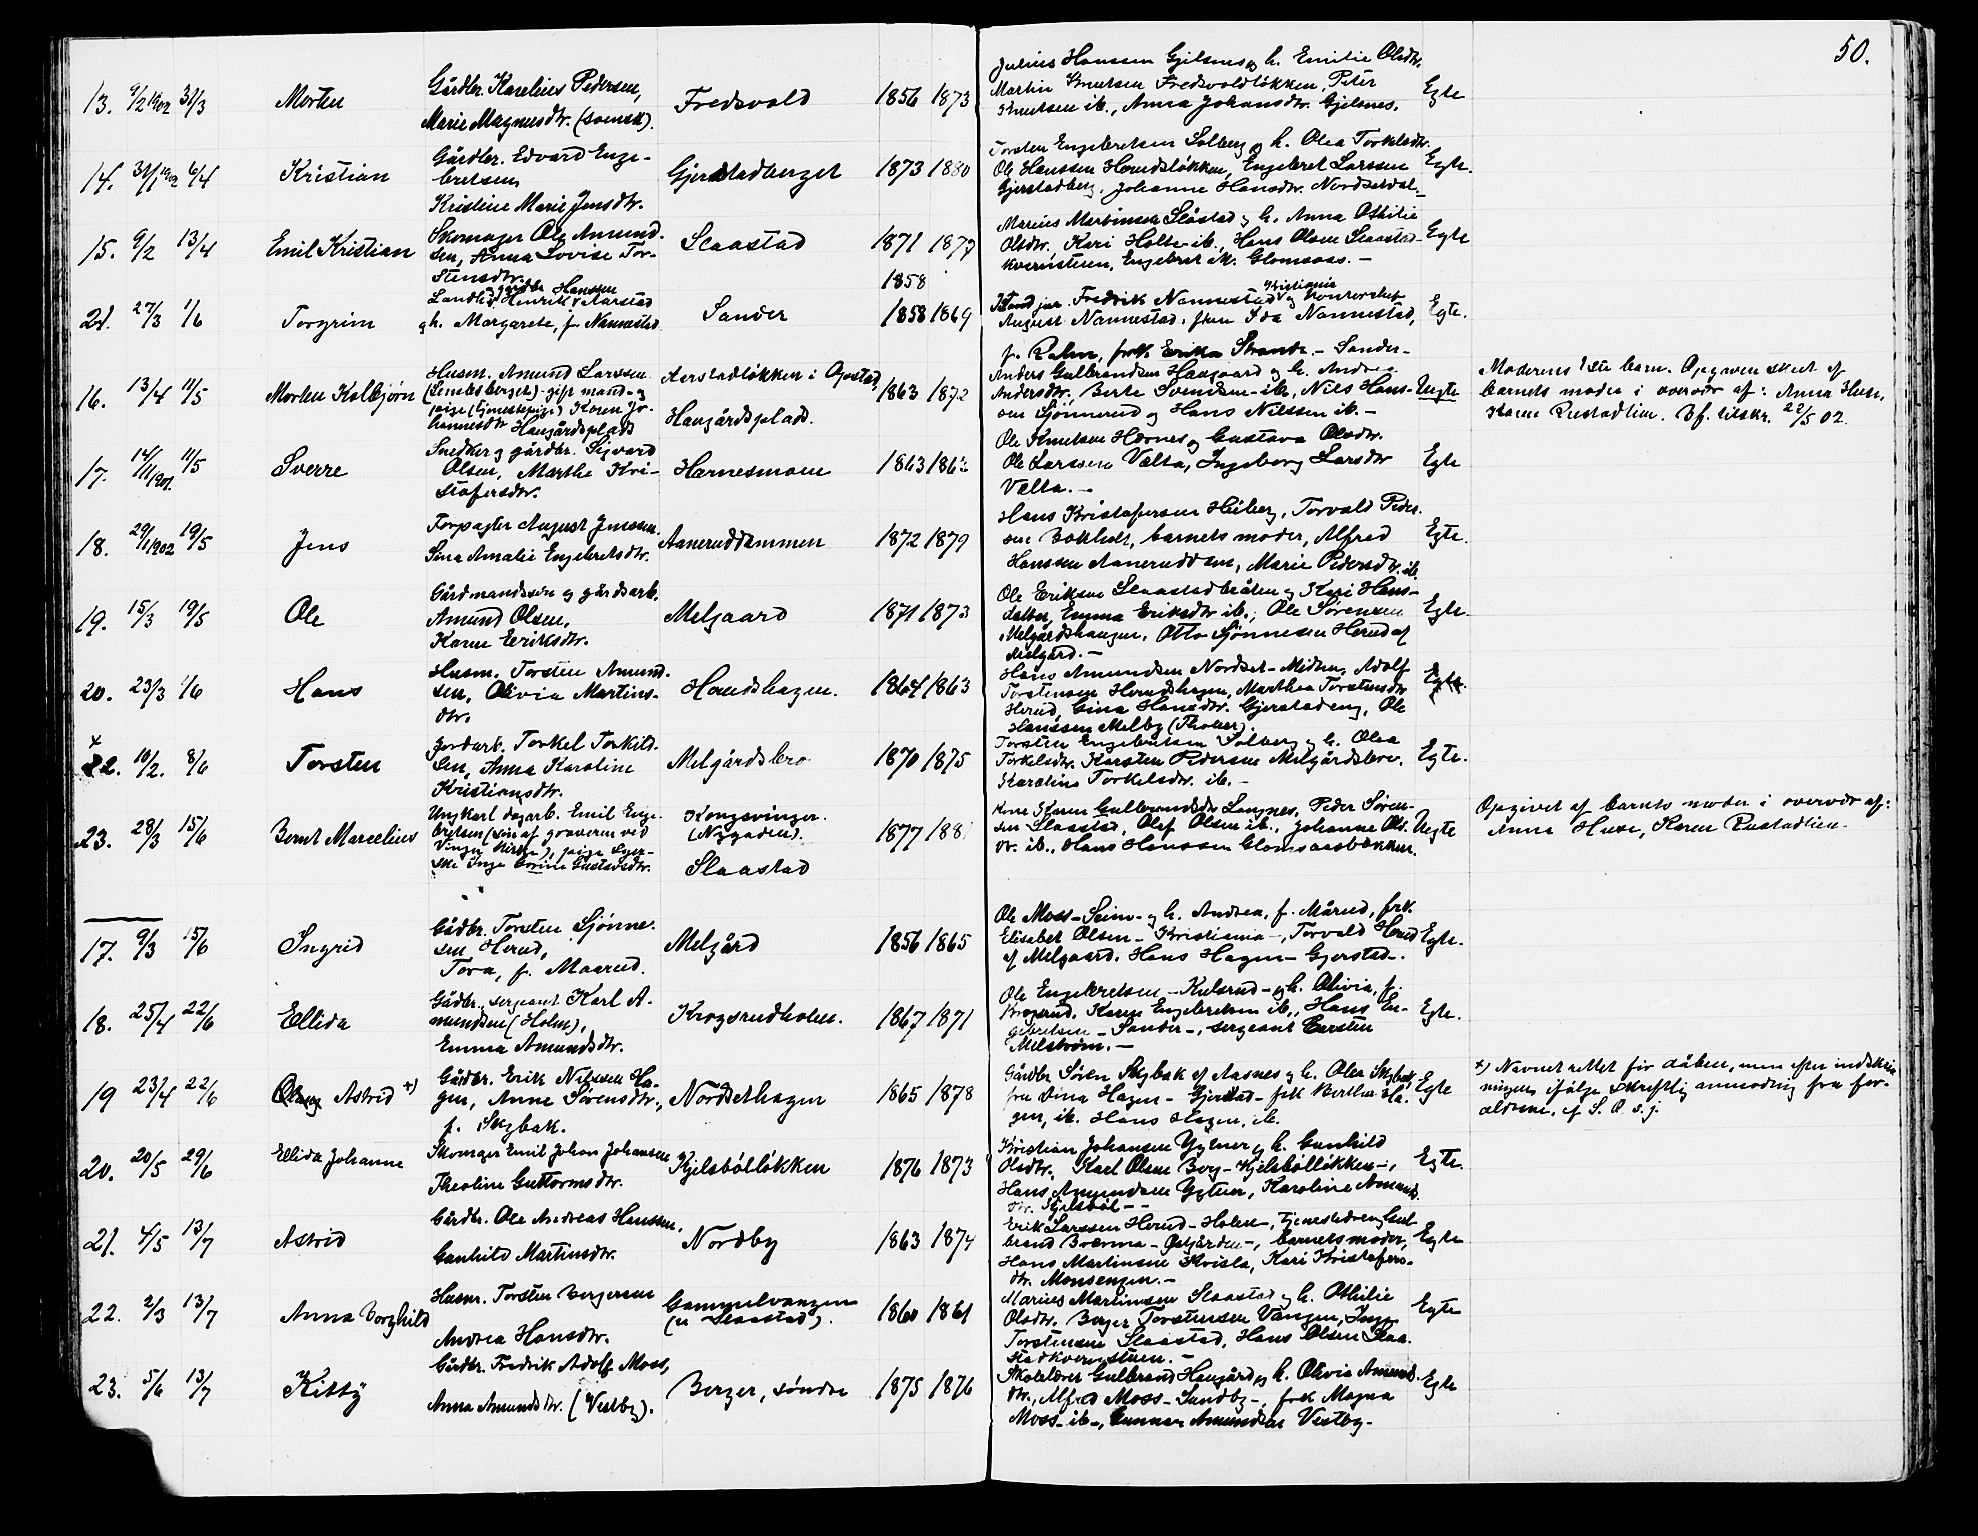 50.
13. 9/2 1902 31/3 Morten
Gårdbr. Karelius Pedersen,
Marie Magnusdtr. (svensk).
Fredsvold 1856 1873
Julius Hanssen Gjelsnes og h. Emilie Olsdtr.
Martin Knutsen Fredsvoldløkken, Peter
Knutsen ib., Anna Johansdtr. Gjelsnes.
Egte
14. 31/1 1902 6/4 Kristian
Gårdbr. Edvard Enge-
bretsen,
Kristine Marie Jensdtr.
Gjerstadberget 1873 1880
Torsten Engebretsen Solberg og h. Olea Torkelsdtr.
Ole Hanssen Herudsløkken, Engebret Larssen
Gjerstadberg, Johanne Hansdtr. Nordsetdal.
Egte.
15. 9/2 13/4 Emil Kristian
Skomager Ole Amund-
sen, Anna Lovise Tor-
stensdtr.
Slaastad 1871 1873
Marius Martinsen Slåstad og h. Anna Othilie
Olsdtr. Kari Holter ib., Hans Olsen Slaastad-
kvernstuen, Engebret ib. Glomsaas. –
Egte
21. 27/3 1/6 Torgrim
og gårdbr. Hanssen
Landh. Henrik Aarstad
og h. Margarete, f. Nannestad
Sander
1858
1858 1869
Fredrik Nannestad Kristiania og kontorchef
August Nannestad, Ida Nannestad,
f. Rahm, frk. Erika Strande. – Sander –
Egte.
16. 13/4 11/5 Morten Kolbjørn
Husm. Amund Larssen
(Lembsberget) – gift mand – og
pige (tjenestepige) Karen Jo-
hannesdtr Haugårdsplads
Aerstadløkken i Opstad,
Haugårdsplads.
1863 1872
Anders Gulbrandsen Haugaard og h. Andrea
Andersdtr., Berte Svendsen – ib., Nils Hans-
sen Sjønnerud og Hans Nilssen ib. –
Uegte
Moderens 1ste barn. Opgiven skeet af
barnets moder i overvær af: Anna Huse,
Karen Rustadlien. Bf. tilskr. 22/5 02.
17. 14/11 1901. 11/5 Sverre
Snedker og gårdbr. Sigvard
Olsen, Marthe Kri-
stofersdtr.
Hærnesmoen 1863 1862
Ole Knutsen Hærnes og Gustava Olsdtr.
Ole Larssen Vælta, Ingeborg Larsdtr
Vælta. –
Egte
18. 29/1 1902 19/5 Jens
Forpagter August Jenssen
Lina Amalie Engebretsdtr.
Aaneruddammen 1872 1879
Hans Kristofersen Huberg, Torvald Peder-
sen Bakledt, barnets moder, Alfred
Hanssen Aaneruddam, Marie Pedersdtr. ib.
Egte.
19. 15/3 19/5 Ole
Gårdmandssøn og gårdsarb.
Amund Olsen,
Karen Eriksdtr.
Melgaard 1871 1873
Ole Eriksen Slaastadbråten og Kari Hans-
datter, Emma Eriksdtr ib., Ole Sørensen
Melgårdshaugen, Otto Sjønnesen Herud af
Melgård. –
Egte.
20. 23/3 1/6 Hans
Husm. Torsten Amund-
sen, Olivia Martins-
dtr.
Herudshagen. 1864 1863
Hans Amundsen Nordset – Midten, Adolf
Torstensen Herudshagen, Marthea Torstensdtr
Herud, Gina Hansdtr. Gjerstadeng, Ole
Hanssen Melby (Tholen).
Egte.
x
22. 10/2. 8/6 Torsten
Jordarb. Torkel Torkild-
sen, Anna Karoline
Kristiansdtr.
Melgårdsbro 1870 1875
Torsten Engebretsen Solberg og h. Olea
Torkelsdtr. Karsten Pedersen Melgårdsbro,
Karoline Torkelsdtr. ib. –
Egte.
23. 28/3 15/6 Bernt Marcelius
Ungkarl dagarb. Emil Enge-
bretsen (søn af graveren ved
Vinger kirke), pige Sver-
ske Inga Gustavsdtr.
Kongsvinger
(Nygaden).
Slaastad
1877 188
Kone Karen Gulbrandsdtr Langnes, Peder Søren-
sen Slaastad, Olaf Olsen ib., Johanne Ols-
dtr. ib., Hans Hanssen Glomsaasbakken.
Uegte
Opgivet af barnets moder i overvær af:
Anna Huse, Karen Rustadlien.
17. 9/3 15/6 Ingrid
Gårdbr. Torsten Sjønne-
sen Herud,
Tora, f. Maarud.
Melgård 1856 1865
Ole Moss – Seim – og h. Andrea, f. Mårud, frk.
Elisabet Olsen – Kristiania –, Torvald Herud
af Melgaard, Hans Hagen – Gjerstad –.
Egte.
18. 25/4 22/6 Ellida
Gårdbr. sergeant Karl A-
mundsen (Holm),
Emma Amundsdtr.
Krogsrudholen. 1867 1871
Ole Engebretsen – Kulsrud – og h. Olivia, f.
Krogsrud, Karen Engebretsen ib., Hans En-
gebretsen – Sander –, sergeant Carsten
Melstrøm. –
Egte.
19 23/4 22/6 Astrid +)
Gårdbr. Erik Nilssen Ha-
gen, Anne Sørensdtr.,
f. Skybak.
Nordsethagen 1865 1878
Gårdbr Søren Skybak af Aasnes og h. Olea Skybak,
fru Dina Hagen – Gjerstad – frk Berthea Ha-
gen, ib. Hans Hagen, ib.
Egte
+) Navnet rettet før dåben, men efter indskriv-
ningen ifølge skriftlig anmodning fra for-
ældrene, cf S. A. s. j.
20. 20/5 29/6 Ellida Johanne
Skomager Emil Johan Johansen
Theoline Guttormsdtr.
Kjelsbølløkken 1876 1873
Kristian Johansen Ygtner og h. Gunhild
Olsdtr. Karl Olsen Berg – Kjelsbølløkken –,
Hans Amundsen Ygtner, Karoline Amunds-
dtr. Kjelsbøl – –
Egte.
21. 4/5 13/7 Astrid
Gårdbr. Ole Andreas Hanssen,
Gunhild Martinsdtr.
Nordby 1863 1874
Erik Larssen Herud – Holen –, tjenestedreng Gul-
brand Brænna – Østgården –, barnets moder,
Hans Martinsen Kvisla, Kari Kristofers-
dtr. Monsengen. –
Egte
22. 2/3 13/7 Anna Borghild
Husm. Torsten Bergersen
Andrea Hansdtr.
Gammelvangen
(u Slaastad).
1860 1861
Marius Martinsen Slaastad og h. Othilie
Olsdtr. Berger Torstensen Vangen, Inga
Torstensen Slaastad, Hans Olsen Slaa-
stadkvernstuen. –
Egte
23. 5/6 13/7 Kitty
Gårdbr. Fredrik Adolf Moss,
Anna Amundsdtr. (Vestby).
Berger, søndre 1875 1876
Skolelærer Gulbrand Haugård og h. Olivia Amunds-
dtr., Alfred Moss – Sundby –, frk Magna
Moss – ib –, Gunnar Amundsen Vestby –
Egte